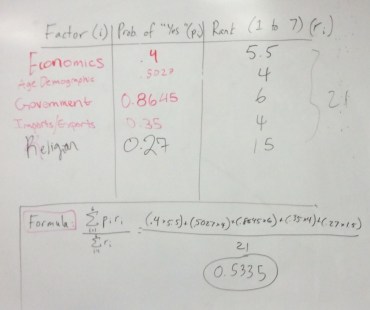 Factor (i) Prob. of "Yes" (pi) Rank (1 to 7) (ri)
Economics .4 5.5
Age Demographics .5027 4
Government 0.8645 6
Imports/Exports 0.35 4
Religion 0.27 1.5
21
Formula: Σ pi ri / Σ ri = (.4×5.5)+(.5027×4)+(.8645×6)+(.35×4)+(.27×1.5) / 21
0.5335